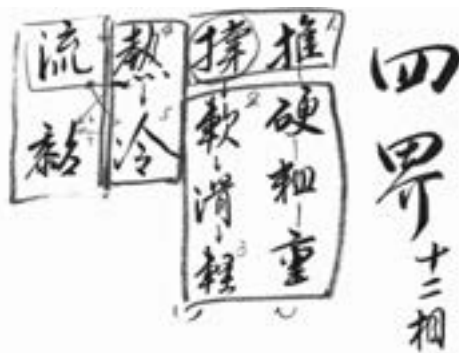 四界
十二相
推 硬 粗 重
撐 軟 滑 輕
熱 冷
流 黏